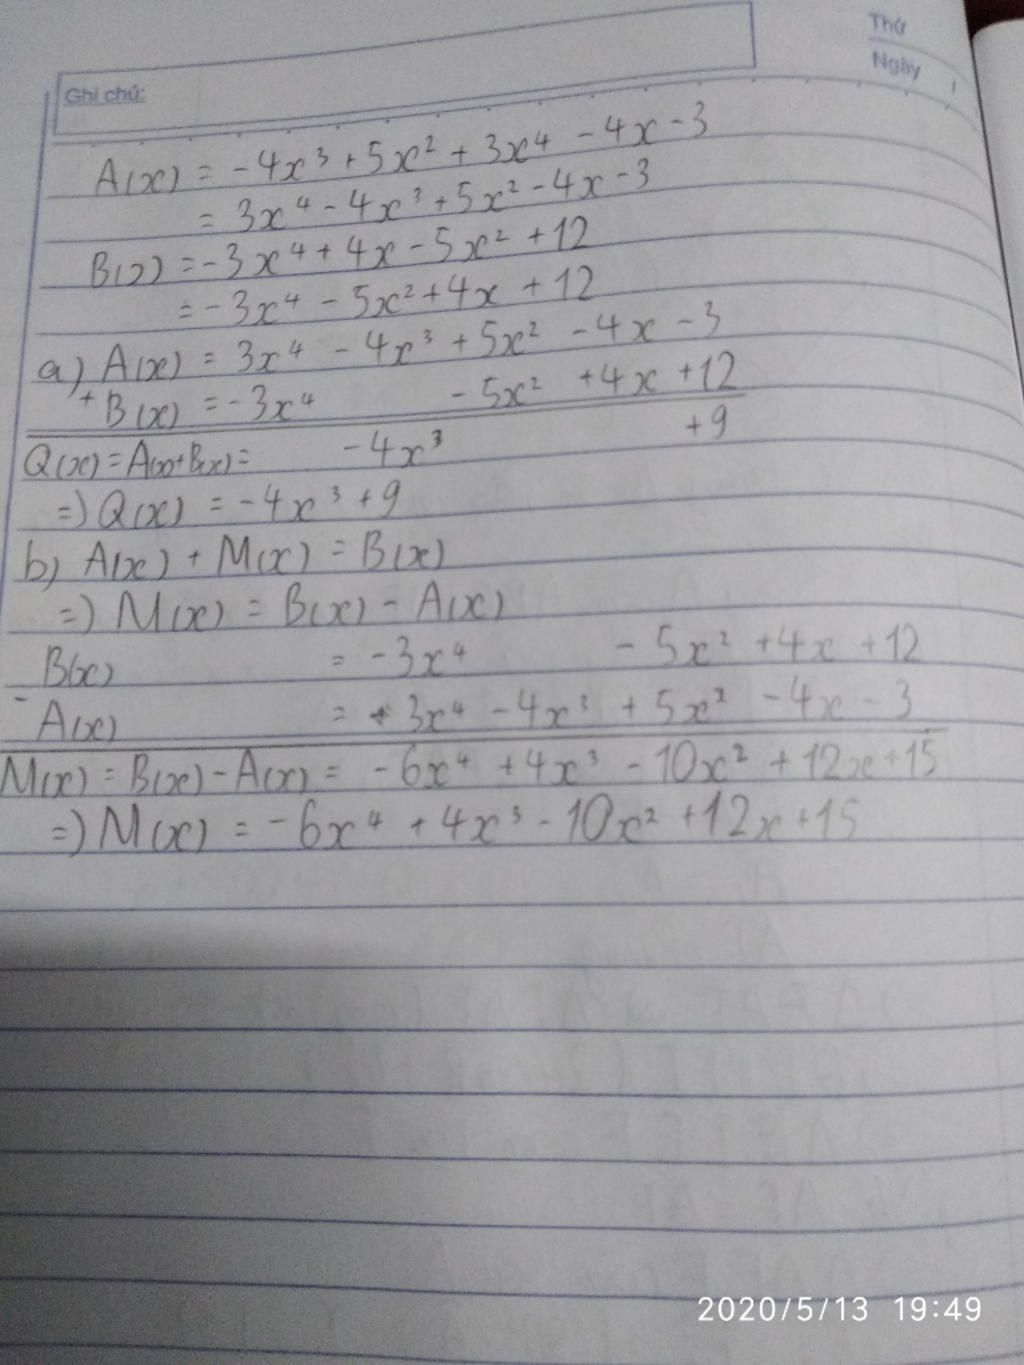 Thứ
Ngày
Ghi chú:
A(x) = -4x³ + 5x² + 3x⁴ - 4x - 3
= 3x⁴ - 4x³ + 5x² - 4x - 3
B(x) = -3x⁴ + 4x - 5x² + 12
= -3x⁴ - 5x² + 4x + 12
a) A(x) = 3x⁴ - 4x³ + 5x² - 4x - 3
+ B(x) = -3x⁴ - 5x² + 4x + 12
Q(x) = A(x)+B(x) = -4x³ +9
=) Q(x) = -4x³ + 9
b) A(x) + M(x) = B(x)
=) M(x) = B(x) - A(x)
B(x) = -3x⁴ - 5x² + 4x + 12
- A(x) = 3x⁴ - 4x³ + 5x² - 4x - 3
M(x) = B(x) - A(x) = -6x⁴ + 4x³ - 10x² + 12x + 15
=) M(x) = -6x⁴ + 4x³ - 10x² + 12x + 15
2020/5/13 19:49